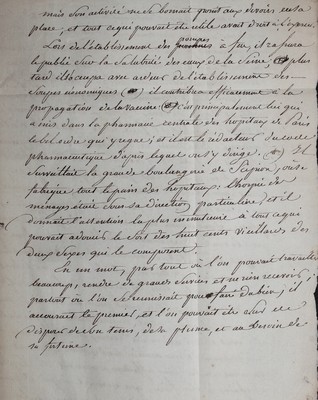 mais son activité ne se bornait point aux devoirs de sa
place, et tout ce qui pouvait être utile avait droit à l'exercer.
Lors de l'établissement des pompes à feu, il rassura
le public sur la salubrité des eaux de la Seine; plus
tard il s'occupa avec ardeur de l'établissement des
soupes économiques; il contribua efficacement à la
propagation de la vaccine; c'est principalement lui qui
a mis dans la pharmacie centrale des hôpitaux de Paris
le bel ordre qui y regne; et il est le rédacteur du code
pharmaceutique d'après lequel on s'y dirige. Il
surveillait la grande boulangerie de Scipion, où se
fabrique tout le pain des hôpitaux; l'hospice des
ménages était sous sa direction particulière; et il
donnait l'attention la plus minutieuse à tout ce qui
pouvait adoucir le sort des huit cents vieillards des
deux sexes qui le composent.
En un mot, partout où l'on pouvait travailler
beaucoup, rendre de grands services et ne rien recevoir,
partout où l'on se réunissait pour faire du bien, il
accourait le premier, et l'on pouvait être sûr de
disposer de son tems, de sa plume, et au besoin de
sa fortune.